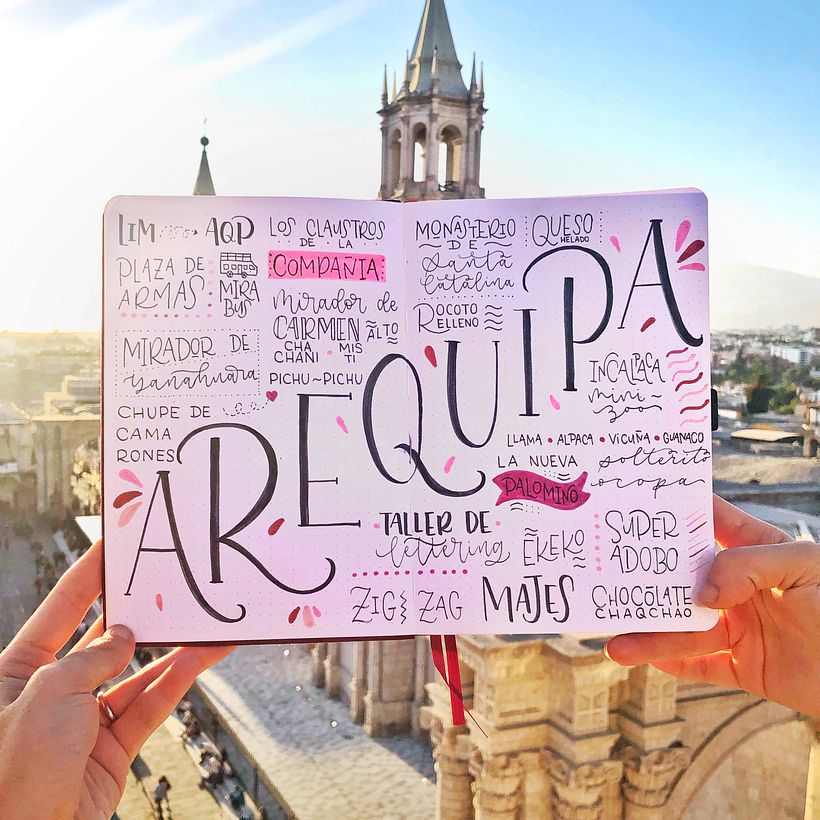 LIM → AQP
PLAZA DE
ARMAS
MIRA
BUS
MIRADOR DE
yanahuara
CHUPE DE
CAMA
RONES
LOS CLAUSTROS
DE LA
COMPAÑIA
mirador de
CARMEN ALTO
CHA
CHANI
MIS
TI
PICHU~PICHU
AREQUIPA
MONASTERIO
DE
Santa
Catalina
QUESO
HELADO
ROCOTO
RELLENO
INCALPACA
mini~
zoo~
LLAMA • ALPACA • VICUÑA • GUANACO
LA NUEVA
PALOMINO
solterito
ocopa
TALLER DE
lettering
EKEKO
SUPER
ADOBO
ZIG ZAG
MAJES
CHOCOLATE
CHAQCHAO